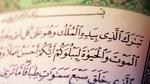 تَبَٰرَكَ ٱلَّذِى بِيَدِهِ ٱلْمُلْكُ وَهُوَ عَلَىٰ كُلِّ
ٱلْمَوْتَ وَٱلْحَيَوٰةَ لِيَبْلُوَكُمْ أَيُّكُمْ أَحْسَنُ
ٱلَّذِى خَلَقَ سَبْعَ سَمَٰوَٰتٍ طِبَاقًا مَّا تَرَىٰ